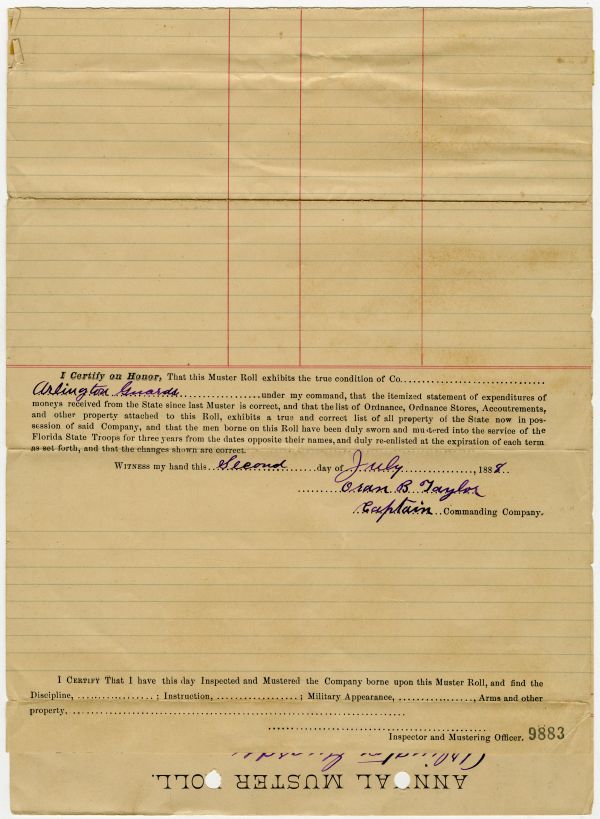 I Certify on Honor, That this Muster Roll exhibits the true condition of Co..............................
Arlington Guards.....................under my command, that the itemized statement of expenditures of
moneys received from the State since last Muster is correct, and that the list of Ordnance, Ordnance Stores, Accoutrements,
and other property attached to this Roll, exhibits a true and correct list of all property of the State now in pos-
session of said Company, and that the men borne on this Roll have been duly sworn and mustered into the service of the
Florida State Troops for three years from the dates opposite their names, and duly re-enlisted at the expiration of each term
as set forth, and that the changes shown are correct.
Witness my hand this Second day of July, 1888.
Oran B. Taylor
Captain Commanding Company.
I Certify That I have this day Inspected and Mustered the Company borne upon this Muster Roll, and find the
Discipline, ..................; Instruction, ....................; Military Appearance, .................., Arms and other
property, ................................................................................
Inspector and Mustering Officer. 9883
Arlington Guards
ANNUAL MUSTER ROLL.